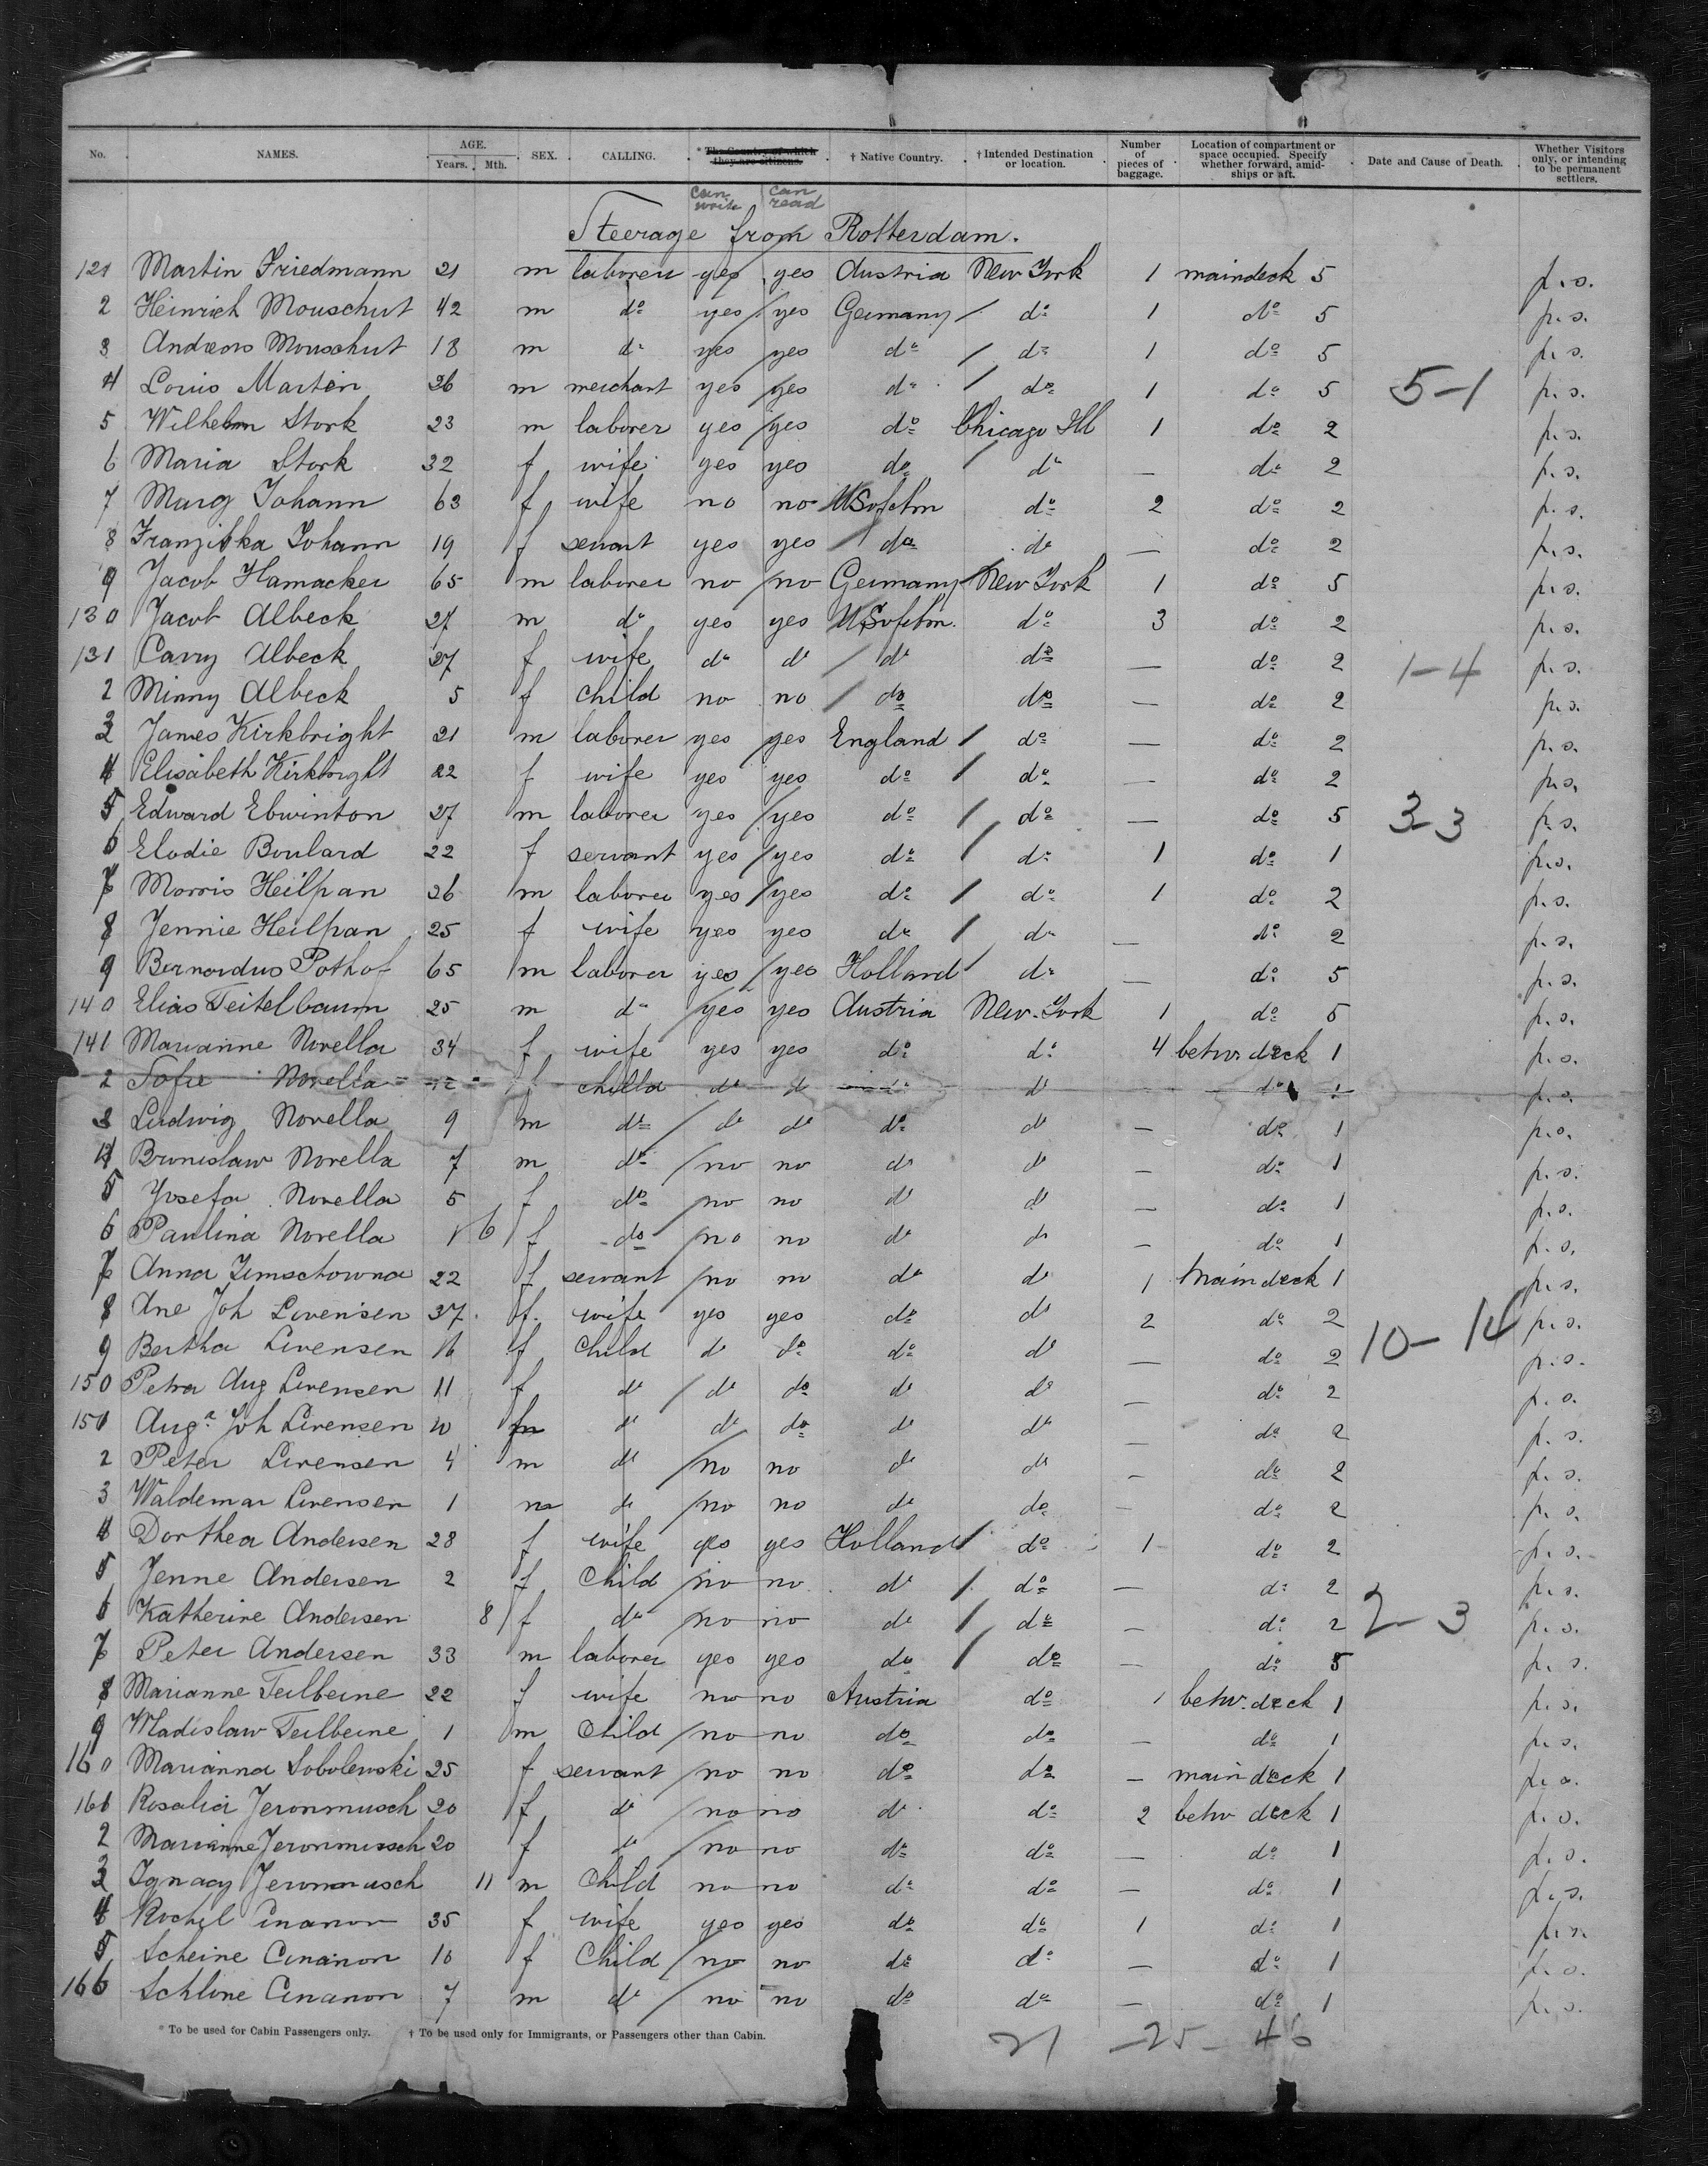 No. NAMES. AGE. Years. Mth. SEX. CALLING. * The Country of which they are citizens. † Native Country. † Intended Destination or location. Number of pieces of baggage. Location of compartment or space occupied. Specify whether forward, amidships or aft. Date and Cause of Death. Whether Visitors only, or intending to be permanent settlers.
can write can read
Steerage from Rotterdam.
121 Martin Friedmann 21 m laborer yes yes Austria New York 1 maindeck 5 p.s.
2 Heinrich Mouschut 42 m do yes yes Germany do 1 do 5 p.s.
3 Andreas Mouschut 18 m do yes yes do do 1 do 5 p.s.
4 Louis Martin 26 m merchant yes yes do do 1 do 5 5-1 p.s.
5 Wilhelm Stork 23 m laborer yes yes do Chicago Ill 1 do 2 p.s.
6 Maria Stork 32 f wife yes yes do do — do 2 p.s.
7 Marg Johann 63 f wife no no USofAm do 2 do 2 p.s.
8 Franziska Johann 19 f servant yes yes do do — do 2 p.s.
9 Jacob Hamacker 65 m laborer no no Germany New York 1 do 5 p.s.
130 Jacob Albeck 27 m do yes yes USofAm. do 3 do 2 p.s.
131 Carry Albeck 27 f wife do do do do — do 2 1-4 p.s.
2 Minny Albeck 5 f child no no do do — do 2 p.s.
3 James Kirkbright 21 m laborer yes yes England do — do 2 p.s.
4 Elisabeth Kirkbright 22 f wife yes yes do do — do 2 p.s.
5 Edward Elwinton 27 m laborer yes yes do do — do 5 3-3 p.s.
6 Elodie Boulard 22 f servant yes yes do do 1 do 1 p.s.
7 Morris Heilpan 26 m laborer yes yes do do 1 do 2 p.s.
8 Jennie Heilpan 25 f wife yes yes do do — do 2 p.s.
9 Bernardus Pothof 65 m laborer yes yes Holland do — do 5 p.s.
140 Elias Teitelbaum 25 m do yes yes Austria New-York 1 do 5 p.s.
141 Marianne Novella 34 f wife yes yes do do 4 betw. deck 1 p.s.
2 Sofie Novella f child do do do do do 1 p.s.
3 Ludwig Novella 9 m do do do do do — do 1 p.s.
4 Bronislaw Novella 7 m do no no do do — do 1 p.s.
5 Josefa Novella 5 f do no no do do — do 1 p.s.
6 Paulina Novella 1 6 f do no no do do — do 1 p.s.
7 Anna Zemschowna 22 f servant no no do do 1 main deck 1 p.s.
8 Ane Joh Livensen 37 f. wife yes yes do do 2 do 2 p.s.
9 Bertha Livensen 16 f child do do do do — do 2 10- p.s.
150 Petra Aug Livensen 11 f do do do do do — do 2 p.s.
151 Aug.a Joh Livensen 10 do do do do do — do 2 p.s.
2 Peter Livensen 4 m do no no do do — do 2 p.s.
3 Waldemar Livensen 1 m do no no do do — do 2 p.s.
4 Dorthea Andersen 28 f wife yes yes Holland do 1 do 2 p.s.
5 Jenne Andersen 2 f child no no do do — do 2 p.s.
6 Katherine Andersen 8 f do no no do do — do 2 2-3 p.s.
7 Peter Andersen 33 m laborer yes yes do do — do 5 p.s.
8 Marianne Teilbeine 22 f wife no no Austria do 1 betw. deck 1 p.s.
9 Wladislaw Teilbeine 1 m child no no do do — do 1 p.s.
160 Marianna Sobolewski 25 f servant no no do do — main deck 1 p.s.
161 Rosalia Jeronmusch 20 f do no no do do 2 betw deck 1 p.s.
2 Marianne Jeronmusch 20 f do no no do do — do 1 p.s.
3 Ignacy Jeronmusch 11 m child no no do do — do 1 p.s.
4 Rochel Cinanon 35 f wife yes yes do do 1 do 1 p.s.
5 Scheine Cinanon 10 f child no no do do — do 1 p.s.
166 Schlone Cinanon 7 m do no no do do — do 1 p.s.
* To be used for Cabin Passengers only. † To be used only for Immigrants, or Passengers other than Cabin.
21 -25- 46